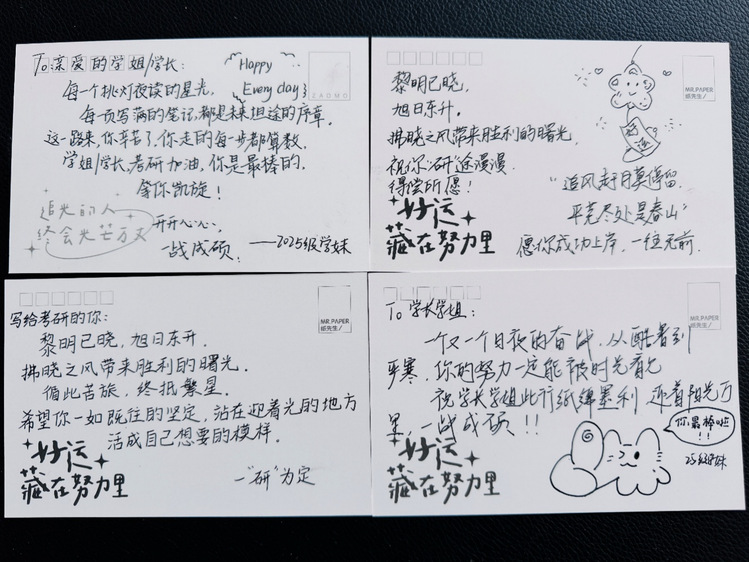 To 亲爱的学姐/学长：
每一个挑灯夜读的星光，
每一页写满的笔记，都是未来坦途的序章。
这一路来，你辛苦了，你走的每一步都算数。
学姐/学长，考研加油，你是最棒的。
拿你凯旋！
Happy
Every day
ZAOMO
追光的人
终会光芒万丈
开开心心、
一战成硕。
——2025级学妹
黎明已晓，
旭日东升。
拂晓之风带来胜利的曙光，
祝你“研”途漫漫
得偿所愿！
好运
藏在努力里
“追风赶月莫停留，
平芜尽处是春山”
愿你成功上岸，一往无前.
好运
MR.PAPER
纸先生/
写给考研的你：
黎明已晓，旭日东升.
拂晓之风带来胜利的曙光.
循此苦旅，终抵繁星.
希望你一如既往的坚定，站在迎着光的地方
活成自己想要的模样.
好运
藏在努力里
一“研”为定
MR.PAPER
纸先生/
To 学长学姐：
一个又一个日夜的奋战，从酷暑到
严寒，你的努力一定能被时光看见
祝学长学姐此行纸绵墨利 迎着阳光万
里，一战成硕！！
好运
藏在努力里
你最棒啦
!!
25级学妹
MR.PAPER
纸先生/